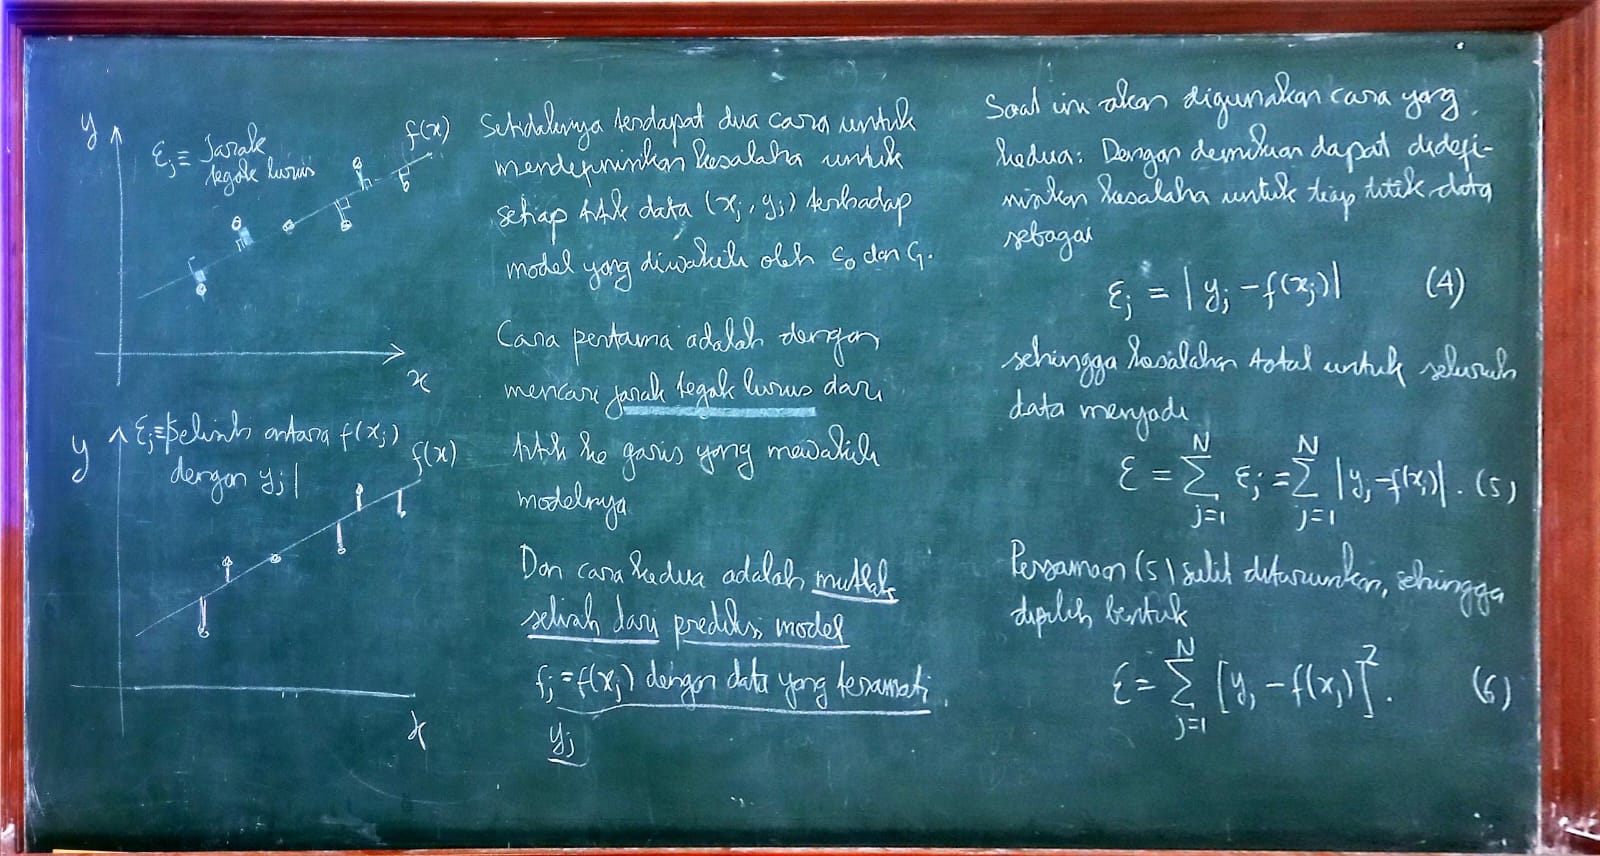 y
εj ≡ Jarak
tegak lurus
f(x)
x
y
εj ≡ |selisih antara f(xj)
dengan yj|
f(x)
x
Setidaknya terdapat dua cara untuk
mendefinisikan kesalaha untuk
setiap titik data (xj, yj) terhadap
model yang diwakili oleh c₀ dan c₁.
Cara pertama adalah dengan
mencari jarak tegak lurus dari
titik ke garis yang mewakili
modelnya
Dan cara kedua adalah mutlak
selisih dari prediksi model
fj = f(xj) dengan data yang teramati
yj
Saat ini akan digunakan cara yang
kedua. Dengan demikian dapat didefi-
nisikan kesalaha untuk tiap titik data
sebagai
εj = | yj − f(xj)| (4)
sehingga kesalahan total untuk seluruh
data menjadi
ε = ∑_{j=1}^{N} εj = ∑_{j=1}^{N} |yj − f(xj)|. (5)
Persamaan (5) sulit diturunkan, sehingga
dipilih bentuk
ε = ∑_{j=1}^{N} [yj − f(xj)]². (6)